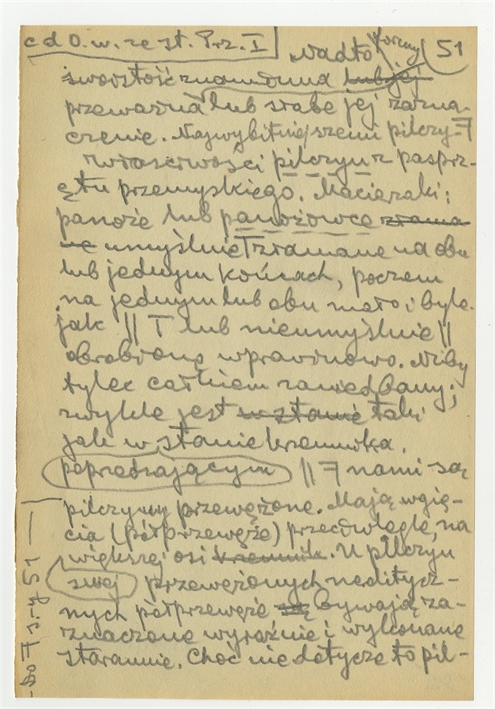 c d 0. w. ze st. Prz. I
Nadto formy 51
swoistość znamienna lub jej
przeważna lub słabe jej zazna-
czenie. Najwybitniejszemi pilczy-7
właściwości pilczyn z pasprz-
ętu przemyskiego. Macierzaki:
panoże lub panożowce złama
ne umyślnie T złamane na obu
lub jednym końcach, poczem
na jednym lub obu mało i byle
jak || T lub nieumyślnie ||
obrobiono wprawnowo. Niby
tylec całkiem zaniedbany;
zwykle jest w stanie taki
jak w stanie krzemiwka.
poprzedzającym || 7 nami są
pilczyny przewężone. Mają wgię-
cia (półprzewęże) przeciwległe, na
większej osi krzemnika. U pilczyn
swej przewężonych neolitycz-
nych półprzewęże są bywają za-
znaczone wyraźnie i wykonane
starannie. Choć nie dotyczę to pil-
do T s. 51